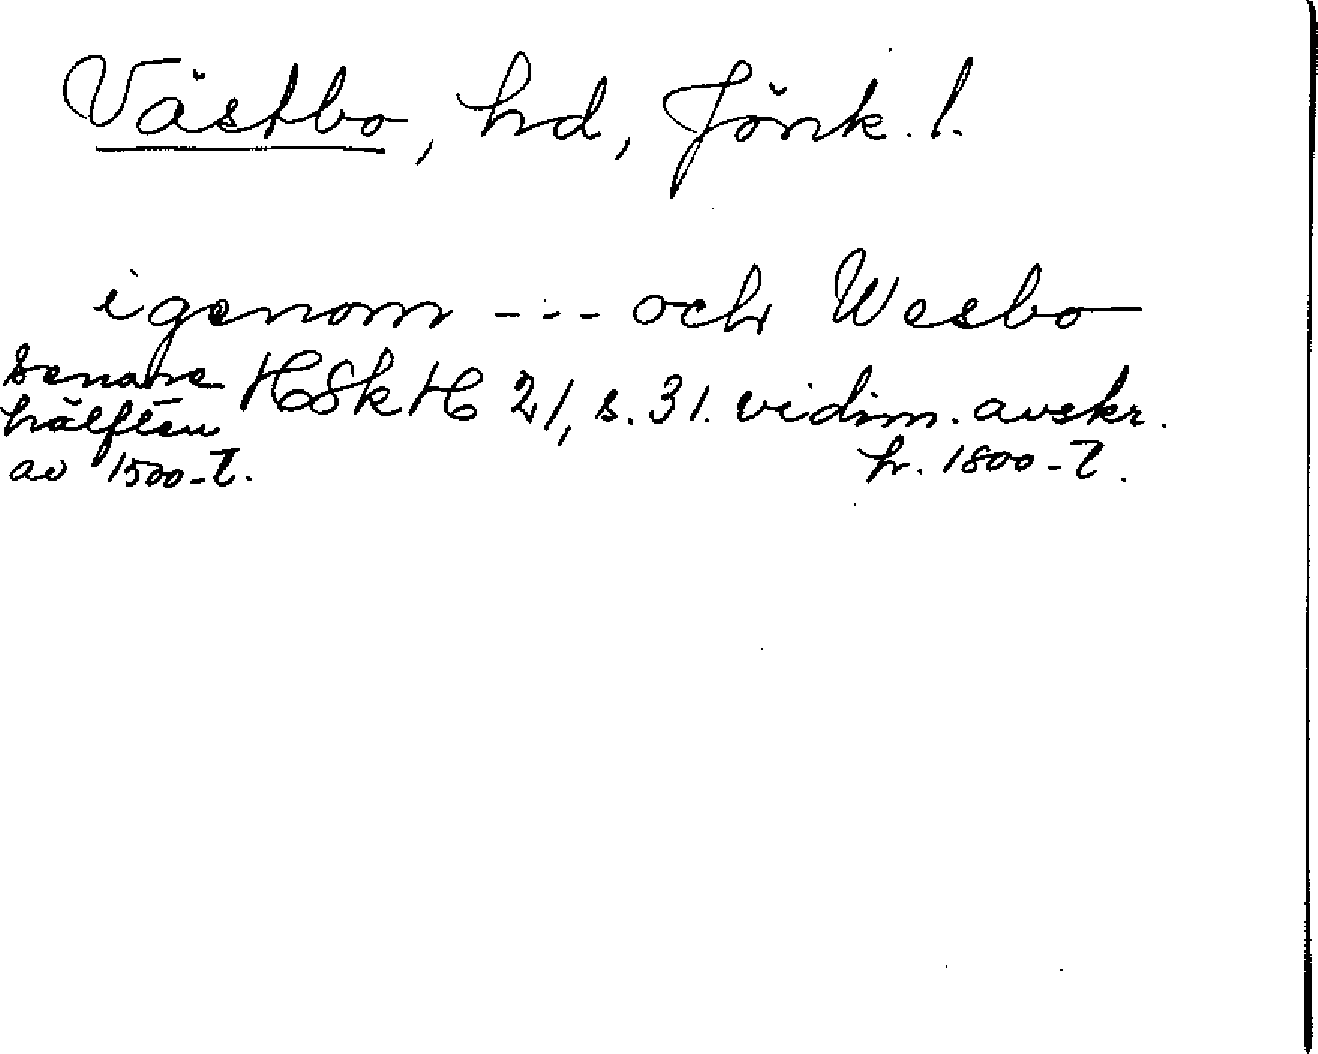 Västbo, hd, Jönk. l.
igenom --- och Wesbo
senare HSkH 21, s. 31. vidim. avskr.
hälften
av 1500-t. fr. 1800-t.